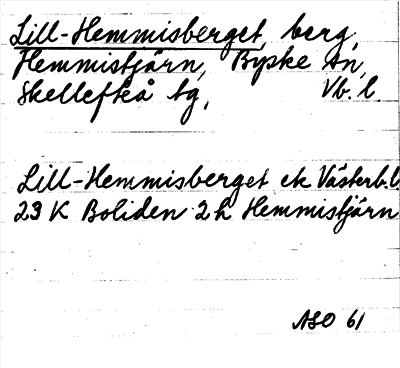 Lill-Hemmisberget, berg,
Hemmistjärn, Byske sn,
Skellefteå tg, Vb. l.
Lill-Hemmisberget ek Västerb.l.
23 K Boliden 2h Hemmistjärn
ASO 61